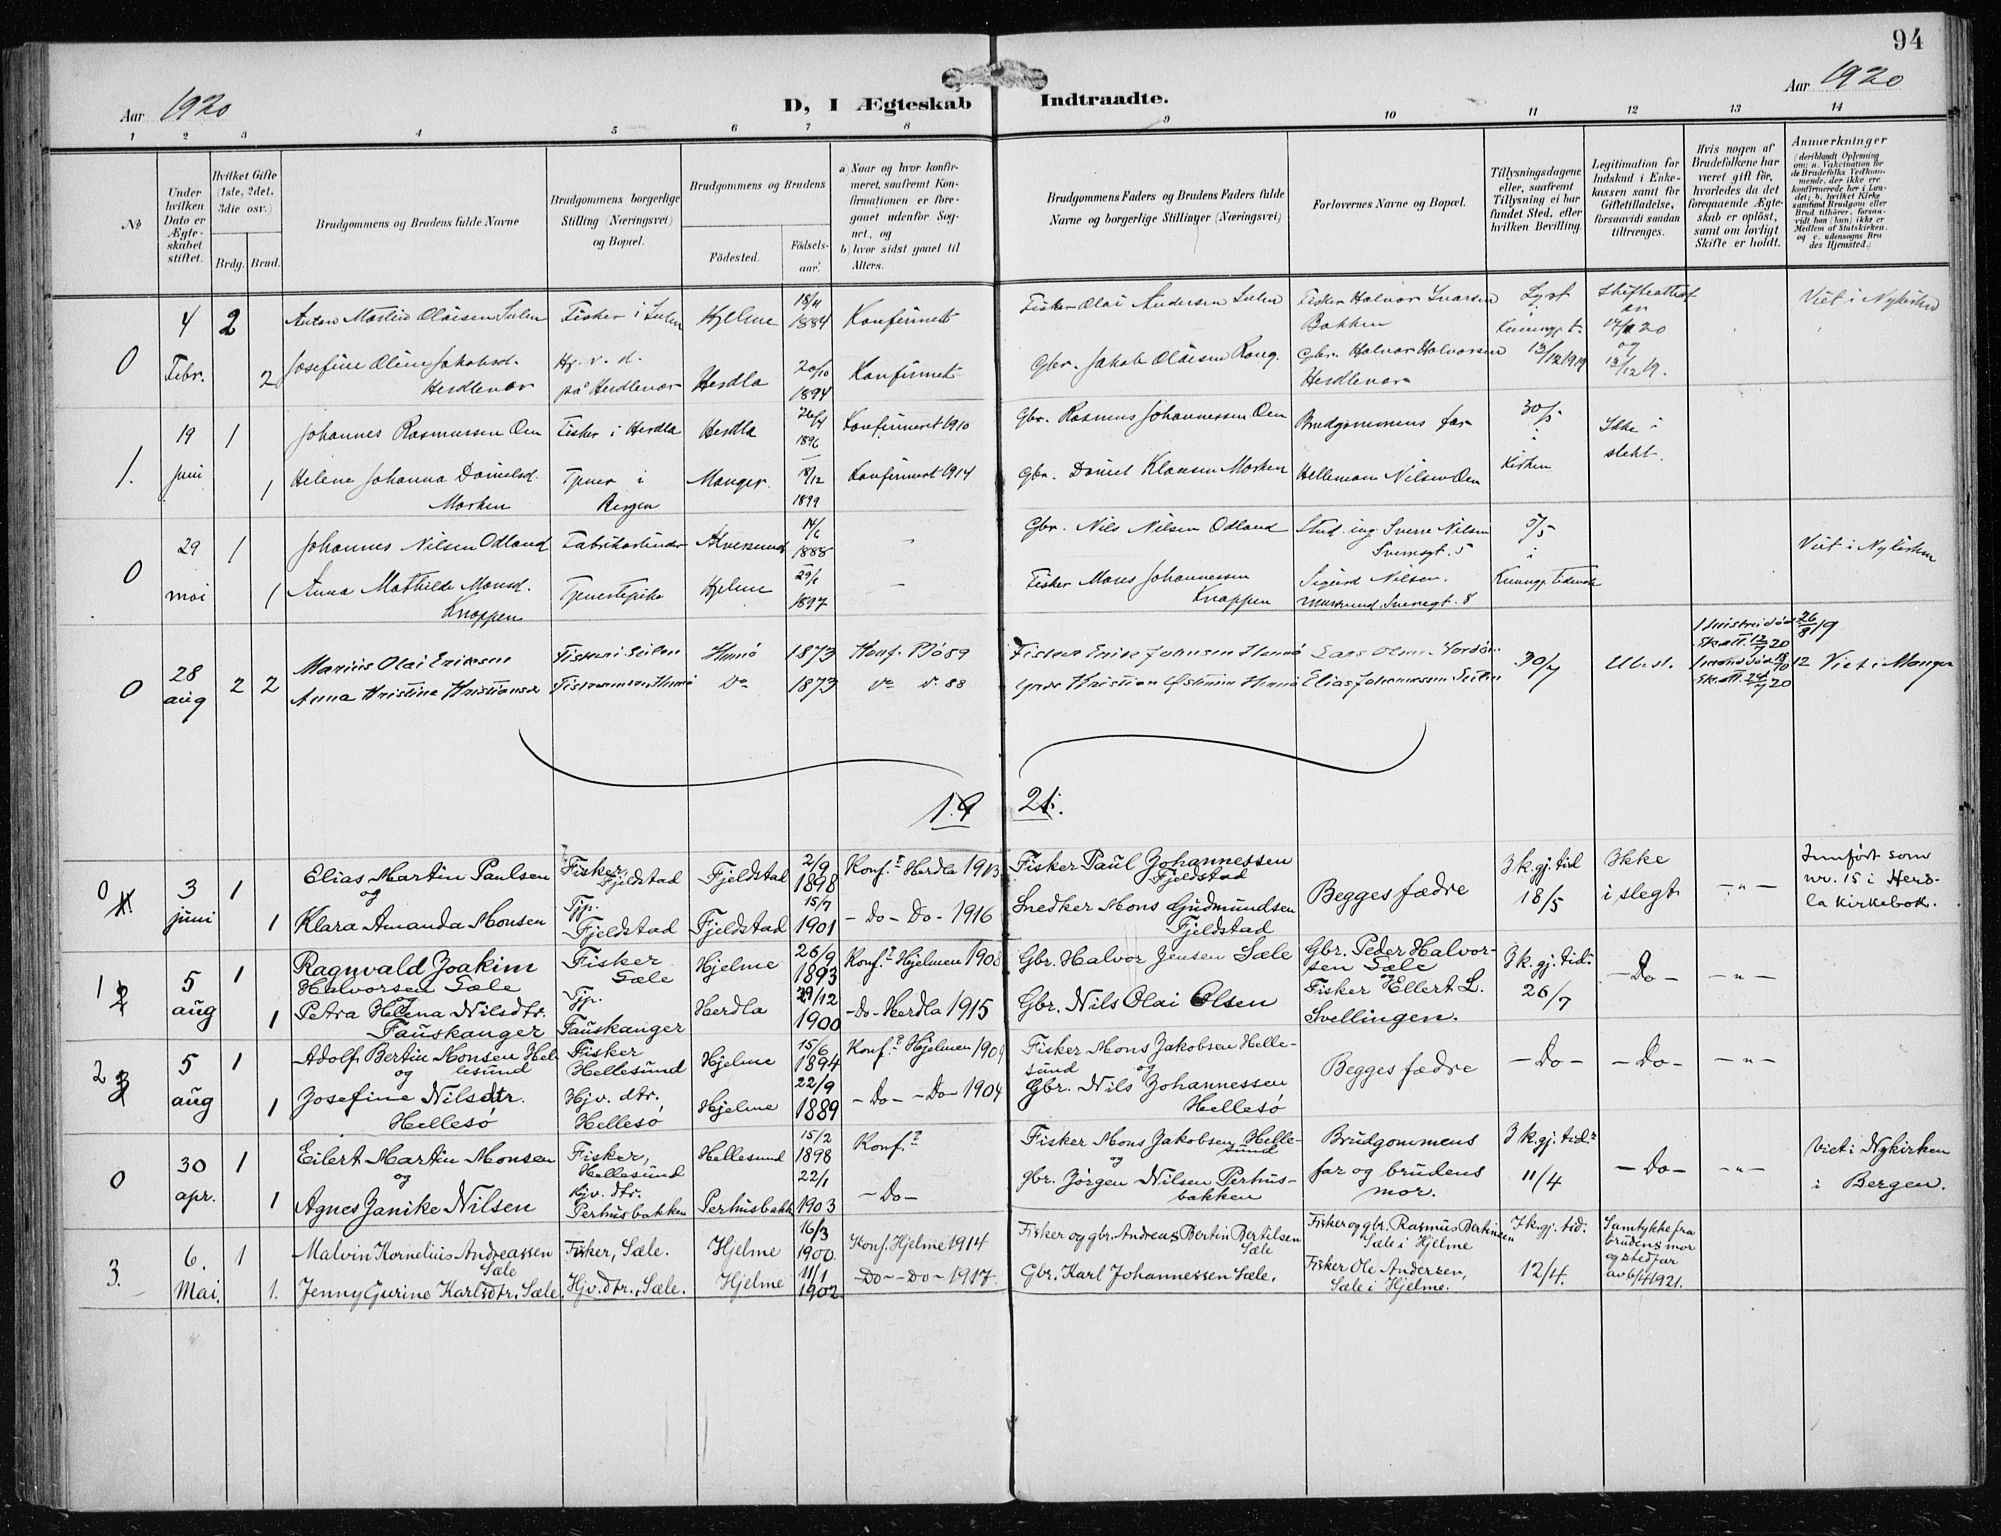 94
Aar 1920
D, I Ægteskab Indtraadte.
Aar 1920
1 2 3 4 5 6 7 8 9 10 11 12 13 14
No
Under hvilken Dato er Ægteskabet stiftet.
Hvilket Gifte (1ste, 2det, 3die osv.)
Brdg. Brud.
Brudgommens og Brudens fulde Navne
Brudgommens borgerlige Stilling (Næringsvei) og Bopæl.
Brudgommens og Brudens
Födested.
Födselsaar.
a) Naar og hvor konfirmeret, saafremt Konfirmationen er foregaaet udenfor Sognet, og
b) hvor sidst gaaet til Alters.
Brudgommens Faders og Brudens Faders fulde Navne og borgerlige Stillinger (Næringsvei)
Forlovernes Navne og Bopæl.
Tillysningsdagene eller, saafremt Tillysning ei har fundet Sted, efter hvilken Bevilling.
Legitimation for Indskud i Enkekassen samt for Giftetilladelse, forsaavidt saadan tiltrænges.
Hvis nogen af Brudefolkene har været gift för, hvorledes da det foregaaende Ægteskab er oplöst, samt om lovligt Skifte er holdt.
Anmærkninger
(deriblandt Oplysning om: a. Vakcination for de Brudefolks Vedkommende, der ikke ere konfirmerede her i Landet; b. hvilket Kirkesamfund Brudgom eller Brud tilhörer, forsaavidt han (hun) ikke er Medlem af Statskirken. og c. udensogns Brudes Hjemsted.)
0 4 Febr. 2 Anton Martin Olaisen Sulen Fisker i Sulen Hjelme 18/11 1884 Konfirmet Fisker Olai Andersen Sulen Fisker Halvor Ivarsen Bakken Lyst i Kunngj. t. 13/12 1919 Skifteattest av 17/1 20 og 13/12 19. Viet i Nykirken
2 Josefine Oline Jakobsd. Herdlevær Hj. v. d. på Herdlevær Herdla 20/10 1894 Konfirmet Gbr. Jakob Olaisen Rong. Gbr. Halvor Halvorsen Herdlevær
1. 19 juni 1 Johannes Rasmussen Oen Fisker i Herdla Herdla 26/4 1896 Konfirmeret 1910 Gbr. Rasmus Johannessen Oen Brudgommens far 30/5 i Kirken Ikke i slekt.
1 Helene Johanna Danielsd. Marken Tjener i Bergen Manger. 8/12 1899 Konfirmert 1914 Gbr. Daniel Klausen Marken Helleman Nilsen Oen
0 29 mai 1 Johannes Nilsen Odland Fabrikarbeider Alversund 14/6 1888 " Gbr. Nils Nilsen Odland Stud. ing Sverre Nilsen Sverresgt. 5 5/5 i Kunngj. tidende Viet i Nykirken
1 Anna Mathilde Monsd. Knappen Tjenestepike Hjelme 29/1 1897 — Fisker Mons Johannessen Knappen Sigurd Nilsen. Sverregt. 8
0 28 aug 2 Marius Olai Eriksen Fisker i Seilen Hernö 1873 Konf. Bö 89 Fisker Erik Johnsen Hernö 30/7 Ubesl. 1 hustru död 26/8 19 Sk. att. 12/7 20 Viet i Manger
2 Anna Kristine Kristiansd Fiskermann Hernö Do 1873 Do d. 88 Kristian Östensen Hernö Elias Johannessen Seilen 1 mand död 18/10 12 Sk. att. 24/7 20
19 21.
0 3 juni 1 Elias Martin Paulsen og Fisker, Fjeldstad Fjeldstad 2/9 1898 Konf.t Herdla 1913 Fisker Paul Johannessen Fjeldstad Begges fædre 3 k. gj. tid 18/5 Ikke i slegt — " — Innført som nr. 15 i Herdla Kirkebok.
1 Klara Amanda Monsen Tjp. Fjeldstad Fjeldstad 15/7 1901 — Do — Do - 1916 Snedker Mons Gudmundsen Fjeldstad
1 5 aug 1 Ragnvald Joakim Halvorsen Sæle og Fisker Sæle Hjelme 26/9 1893 Konf.t Hjelmen 1908 Gbr. Halvor Jensen Sæle Gbr. Peder Halvorsen Sæle og 3 k. gj. tid. 26/7 — Do — — " —
1 Petra Helena Nilsdtr. Fauskanger Tjp. Fauskanger Herdla 29/12 1900 — Do - Herdla 1915 Gbr. Nils Olai Olsen Fisker Ellert L. Svellingen.
2 5 aug 1 Adolf Bertin Monsen Hellesund og Fisker Hellesund Hjelme 15/6 1894 Konf.t Hjelmen 1909 Fisker Mons Jakobsen Hellesund og Begges fædre — Do — — Do — — " —
1 Josefine Nilsdtr. Hellesö Hjv. dtr. Hellesö Hjelme 22/9 1889 — Do — - Do - 1904 Gbr. Nils Johannessen Hellesö
0 30 apr. 1 Eilert Martin Monsen og Fisker, Hellesund Hellesund 15/2 1898 Konf.t Fisker Mons Jakobsen Hellesund og Brudgommens far og brudens mor. 3 k. gj. tid. 11/4 — Do — — " — Viet i Nykirken i Bergen.
1 Agnes Janike Nilsen Hjv. dtr. Perhusbakken Perhusbakk 22/1 1903 — Do — Gbr. Jørgen Nilsen Perhusbakken
3. 6. Mai. 1 Malvin Kornelius Andreassen Sæle Fisker, Sæle. Hjelme 16/3 1900. Konf. Hjelme 1914 Fisker og gbr. Andreas Bertin Bertilsen Sæle Fisker og gbr. Rasmus Bertinsen Sæle i Hjelme 7 k. gj. tid. 12/4. Samtykke fra brudens mor og stedfar av 6/4 1921.
1. Jenny Gurine Karlsdtr. Sæle. Hjv. dtr., Sæle. Hjelme 11/1 1902. — Do — - Do - 1917. Gbr. Karl Johannessen Sæle. Fisker Ole Andersen, Sæle i Hjelme.